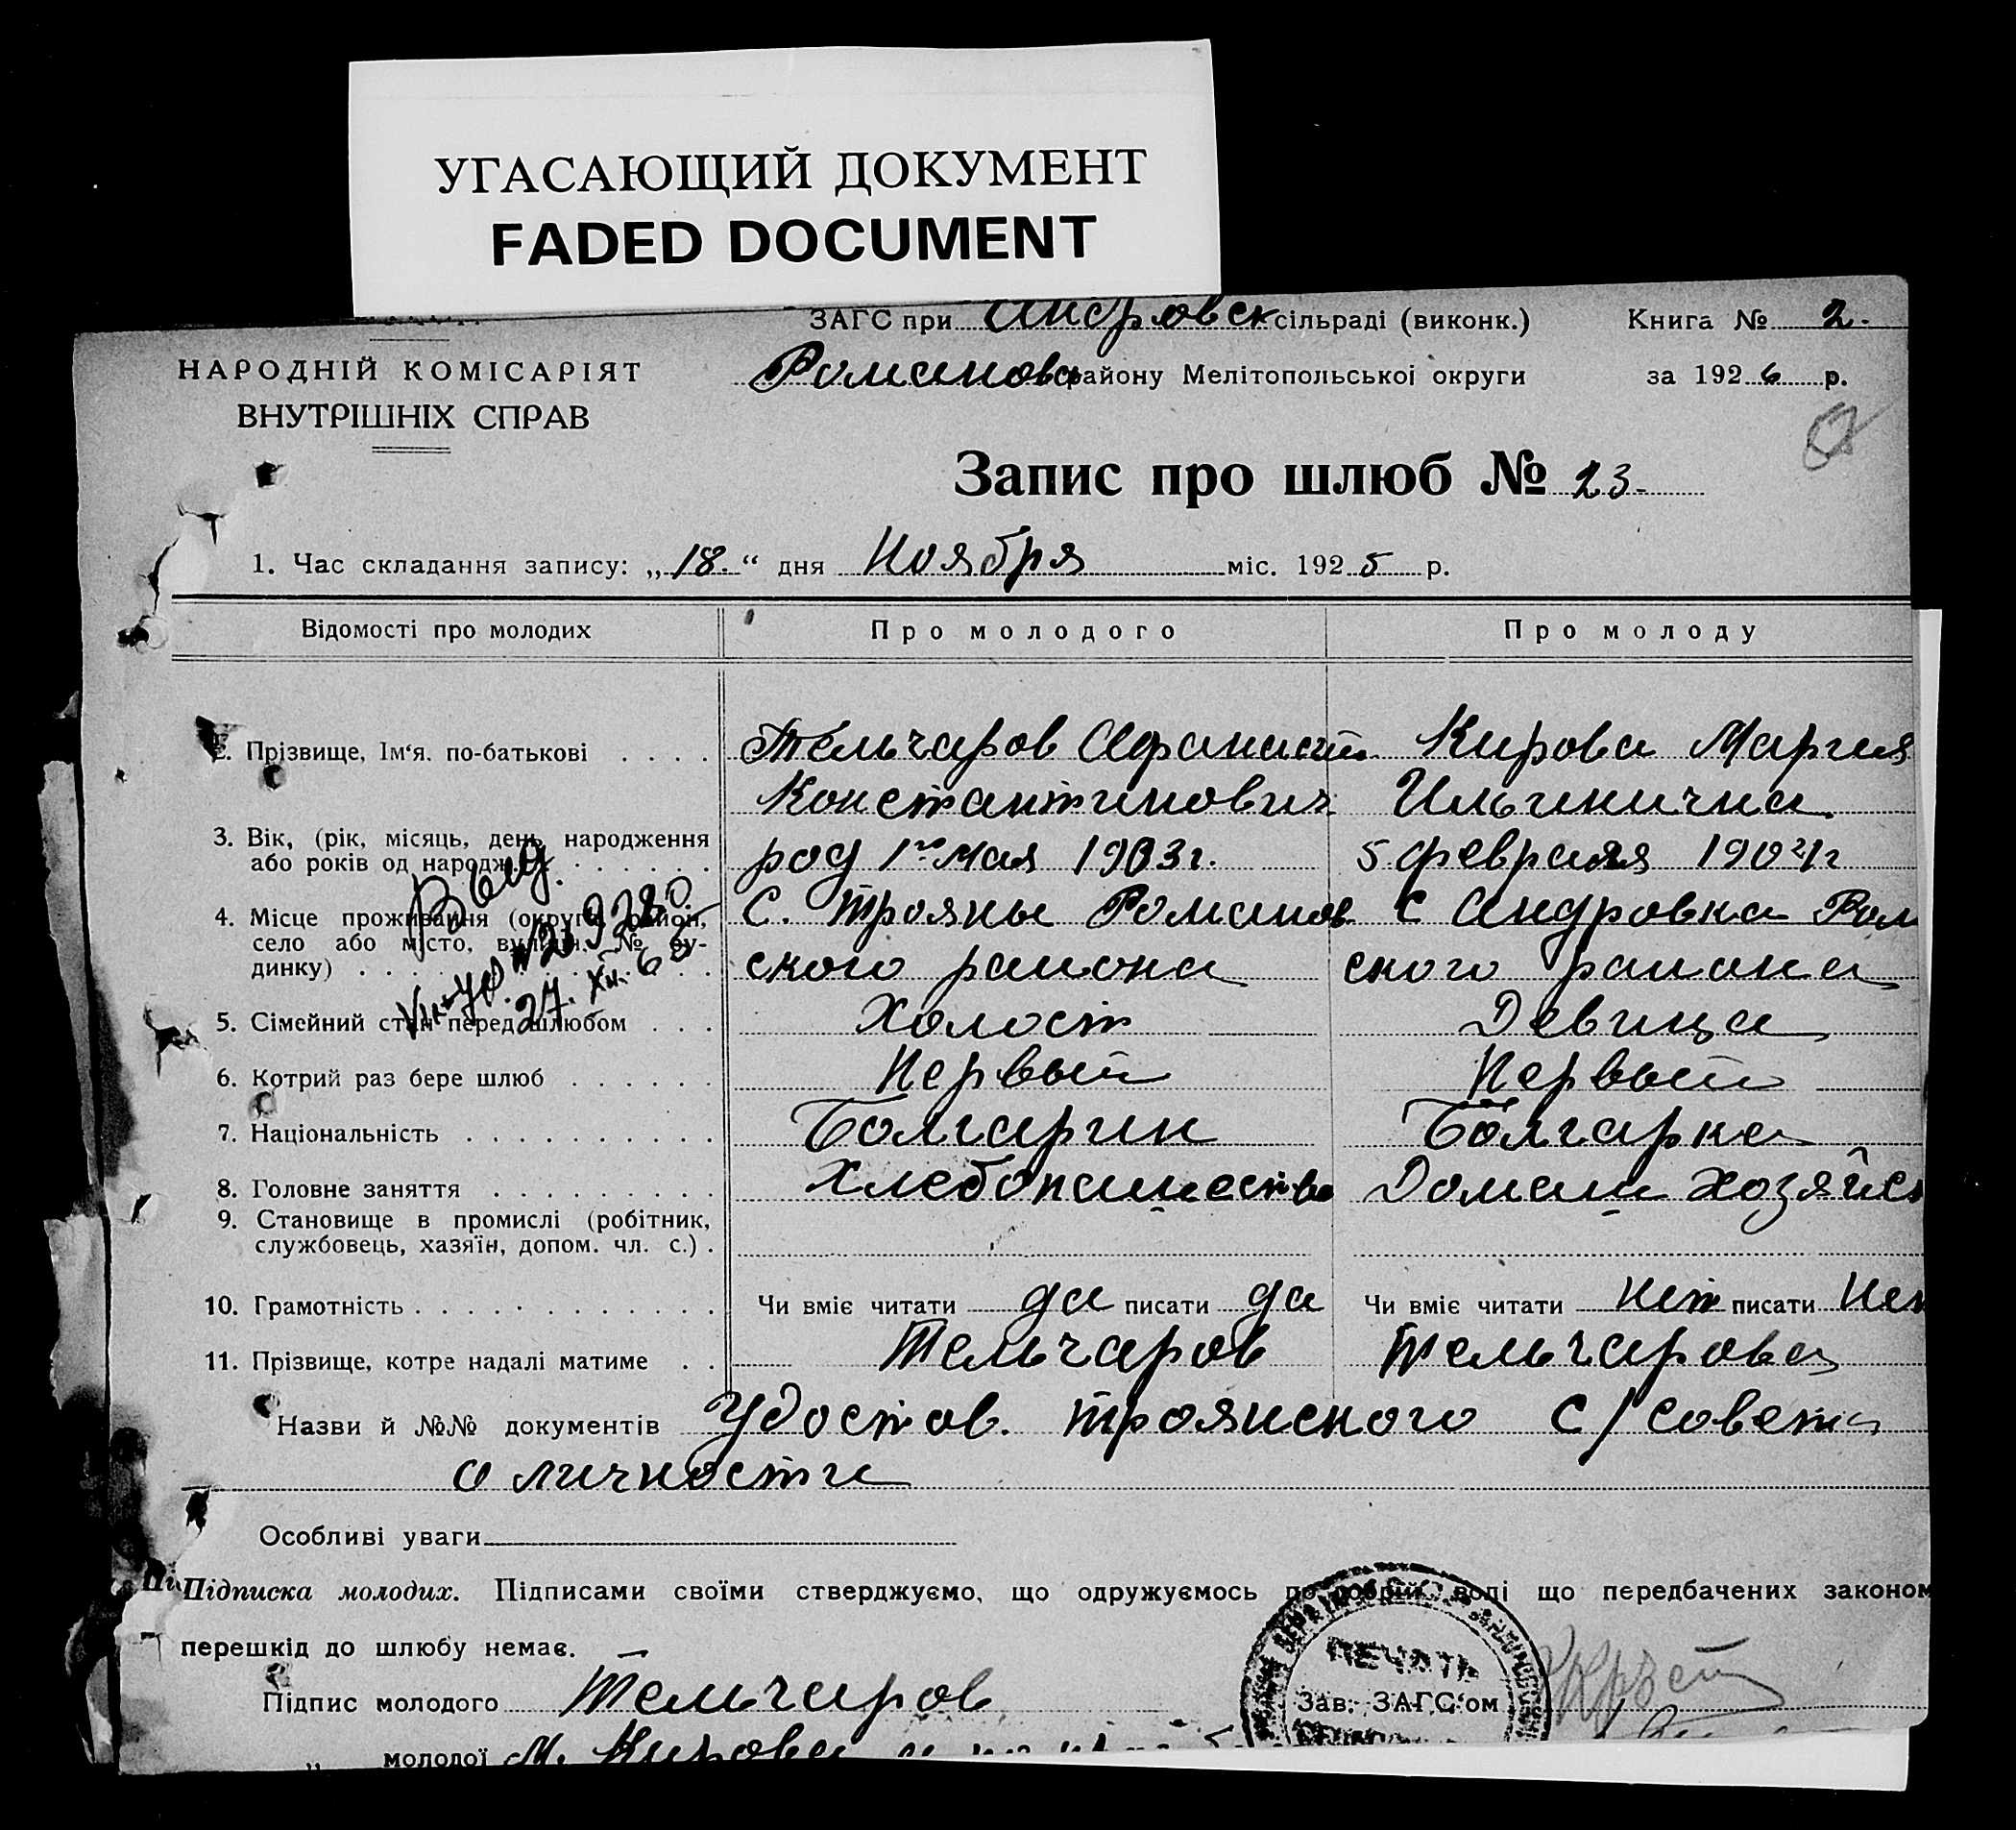 УГАСАЮЩИЙ ДОКУМЕНТ
FADED DOCUMENT
ЗАГС при Андровск сільраді (виконк.) Книга № 2.
НАРОДНІЙ КОМІСАРІЯТ
ВНУТРІШНІХ СПРАВ
Романовс району Мелітопольської округи за 1926 р.
Запис про шлюб № 23.
1. Час складання запису: „18.“ дня Ноября міс. 1925 р.
Відомості про молодих Про молодого Про молоду
2. Прізвище, Ім'я. по-батькові . . . . Тельчаров Афанасий Кирова Мария
Константинович Ильинична
3. Вік, (рік, місяць, день народження
або років од народж. род 1го мая 1903г. 5 февраля 1904г
4. Місце проживання (округа, район, С. Трояны Романов С Андровка Ром
село або місто, вулиця, № бу-
динку) ского раиона ского раиона
Выд.
27. XII. 68
5. Сімейний стан перед шлюбом . . . Холост Девица
6. Котрий раз бере шлюб . . . . . . Первый Первый
7. Національність . . . . . . . . . . Болгарин Болгарка
8. Головне заняття . . . . . . . . . Хлебопашество Домаш Хозяйст
9. Становище в промислі (робітник,
службовець, хазяїн, допом. чл. с.) .
10. Грамотність . . . . . . . . . . . . . Чи вміє читати да писати да Чи вміє читати нет писати Нет
11. Прізвище, котре надалі матиме . . Тельчаров Тельчарова
Назви й №№ документів Удостов. Троянского с/совета
о личности
Особливі уваги
Підписка молодих. Підписами своїми стверджуємо, що одружуємось по добрій волі що передбачених законом
перешкід до шлюбу немає.
ПЕЧАТЬ
Підпис молодого Тельчаров Зав. ЗАГС'ом
„ молодої М. Кирова